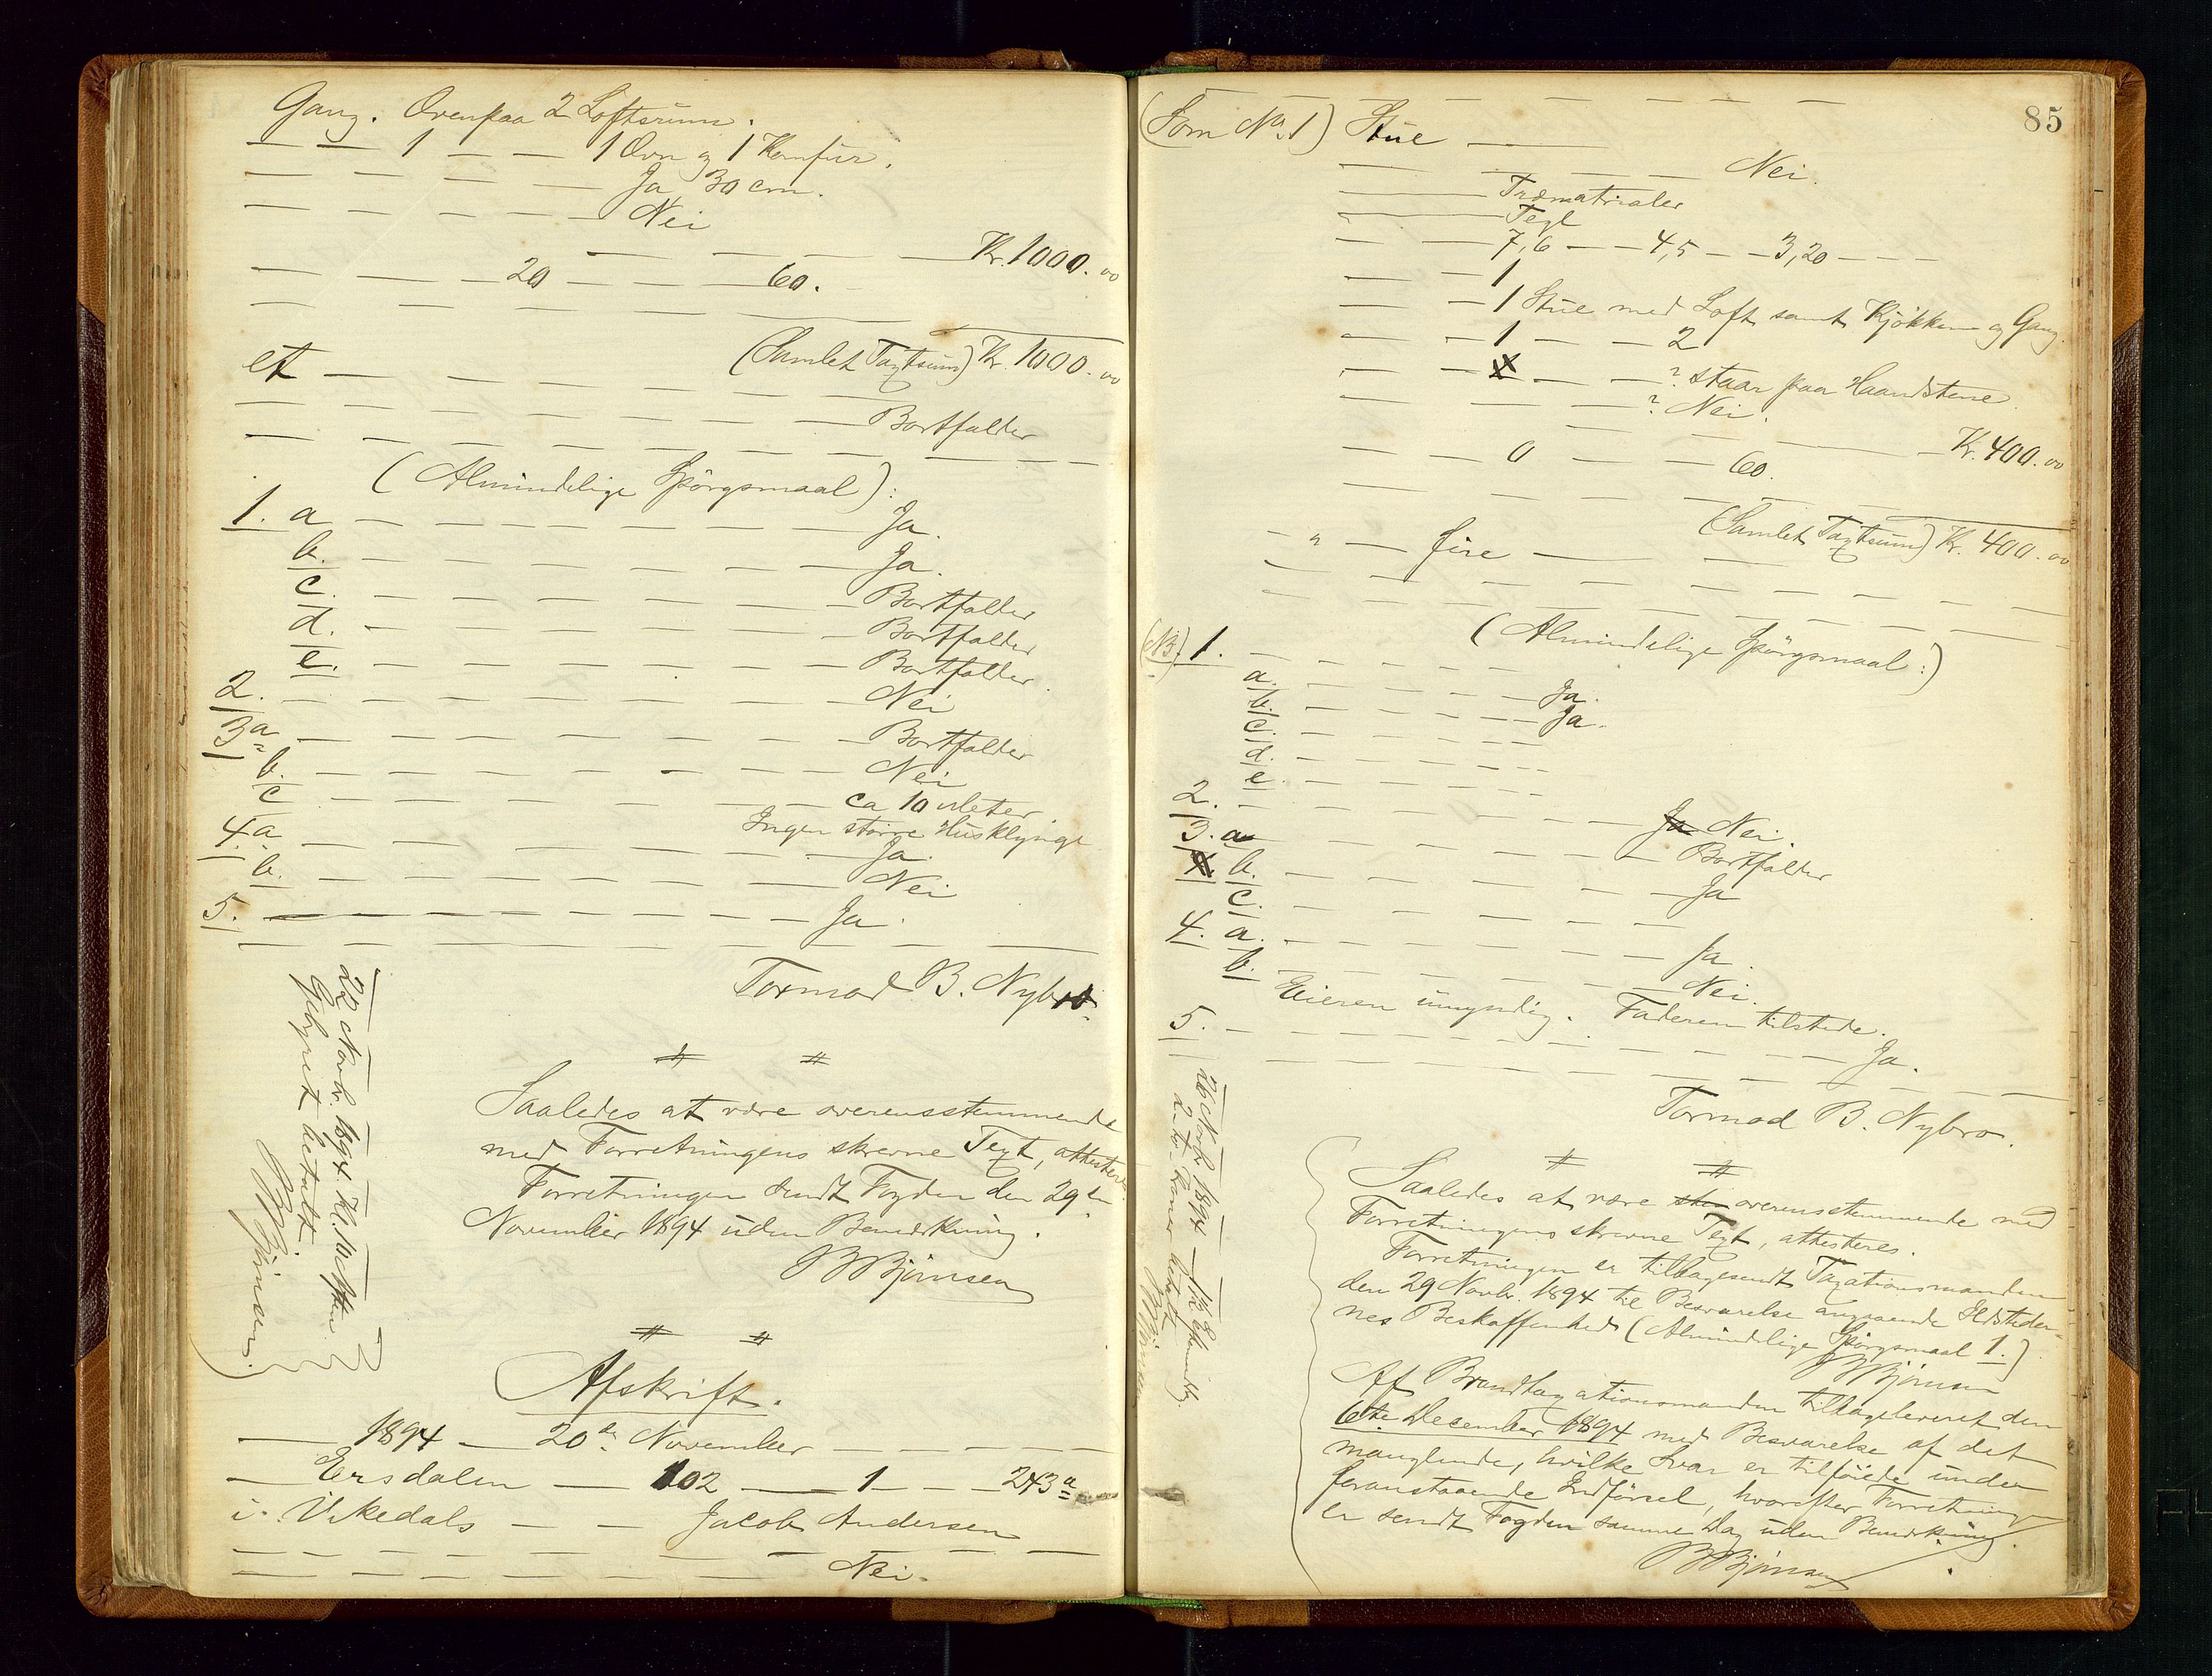 Gang. Ovenpaa 2 Loftsrum.
— — 1 — — 1 Ovn og 1 Komfur.
— — — — — Ja 30 cm.
— — — — — Nei
— — — — Kr. 1000.00
— — — 20 — — — 60.
— — — — — — —
et — — — — (Samlet Taxtsum) Kr. 1000.00
— — — — — — Bortfalder
— — — — — — — — —
(Almindelige Spörgsmaal):
1. a — — — — — — Ja.
b. — — — — — — Ja.
c. — — — — — — Bortfalder
d. — — — — — — Bortfalder
e. — — — — — — Bortfalder.
2. — — — — — — — Nei
3 a — — — — — — — Bortfalder
b. — — — — — — — Nei
c — — — — — — — ca 10 Meter
Ingen större Husklynge
4. a. — — — — — — — Ja.
b. — — — — — — — Nei
5. — — — — — — — Ja.
— — — — — — — — —
Tormod B. Nybro.
22 Novb. 1894 Kl. 10 Aften
Gebyret betalt
BBjönsen.
# #
Saaledes at være overensstemmende
med Forretningens skrevne Text, attesteres.
Forretningen sendt Fogden den 29de
November 1894 uden Bemærkning.
BBjönsen
# #
Afskrift.
— 1894 — 20de November — — — — —
— Ersdalen — 102 — 1 — — 243 a
i. Vikedals — — Jacob Andersen
— — — — — — — — —
— — — — — — — Nei.
85
— — — — — — — —
(Som No. 1) Stue —
— — — — Nei.
— — Træmatrialer
" — Tegl
— — 7,6 — — 4,5 — — 3,20 — — —
— — 1
— — 1 Stue med Loft samt Kjökken og Gang.
— — 1 — — 2
— — X — — ? staar paa Haandstene.
— — — — ? Nei.
— — — — Kr. 400.00
— — 0 — — 60.
— — — — — — —
(Samlet Taxtsum) Kr. 400.00
— " — fire — —
— — — — — — —
— — — — — — —
(Almindelige Spörgsmaal:)
(NB). 1. — — — — —
a. — — — — — Ja.
b. — — — — — Ja.
c. — — — — —
d. — — — — —
e. — — — — —
2. — — — — — — Ja Nei.
3. a — — — — — — Bortfalder
X b. — — — — — — Ja
c. — — — — — —
4. a. — — — — — — Ja.
b. — — — — — — Nei.
Eieren umyndig. Faderen tilstede.
5. — — — — — — — — Ja.
— — — — — — — — —
Tormod B. Nybro.
26 Novb 1894 — 1/2 Eftermdg.
2 — to — Kroner betalt
BBjönsen
# #
Saaledes at være ske overensstemmende med
Forretningens skrevne Text, attesteres.
Forretningen er tilbagesendt Taxationsmanden
den 29 Novbr. 1894 til Besvarelse angaaende Ildsteder-
nes Beskaffenhed (Almindelige Spörgsmaal 1.)
BBjönsen
Af Brandtaxationsmanden tilbageleveret den
6te Desember 1894 med Besvarelse af det
manglende, hvilke Svar er tilföiede under
foranstaaende Indförsel, hvorefter Forretningen
er sendt Fogden samme Dag uden Bemærkning.
BBjönsen